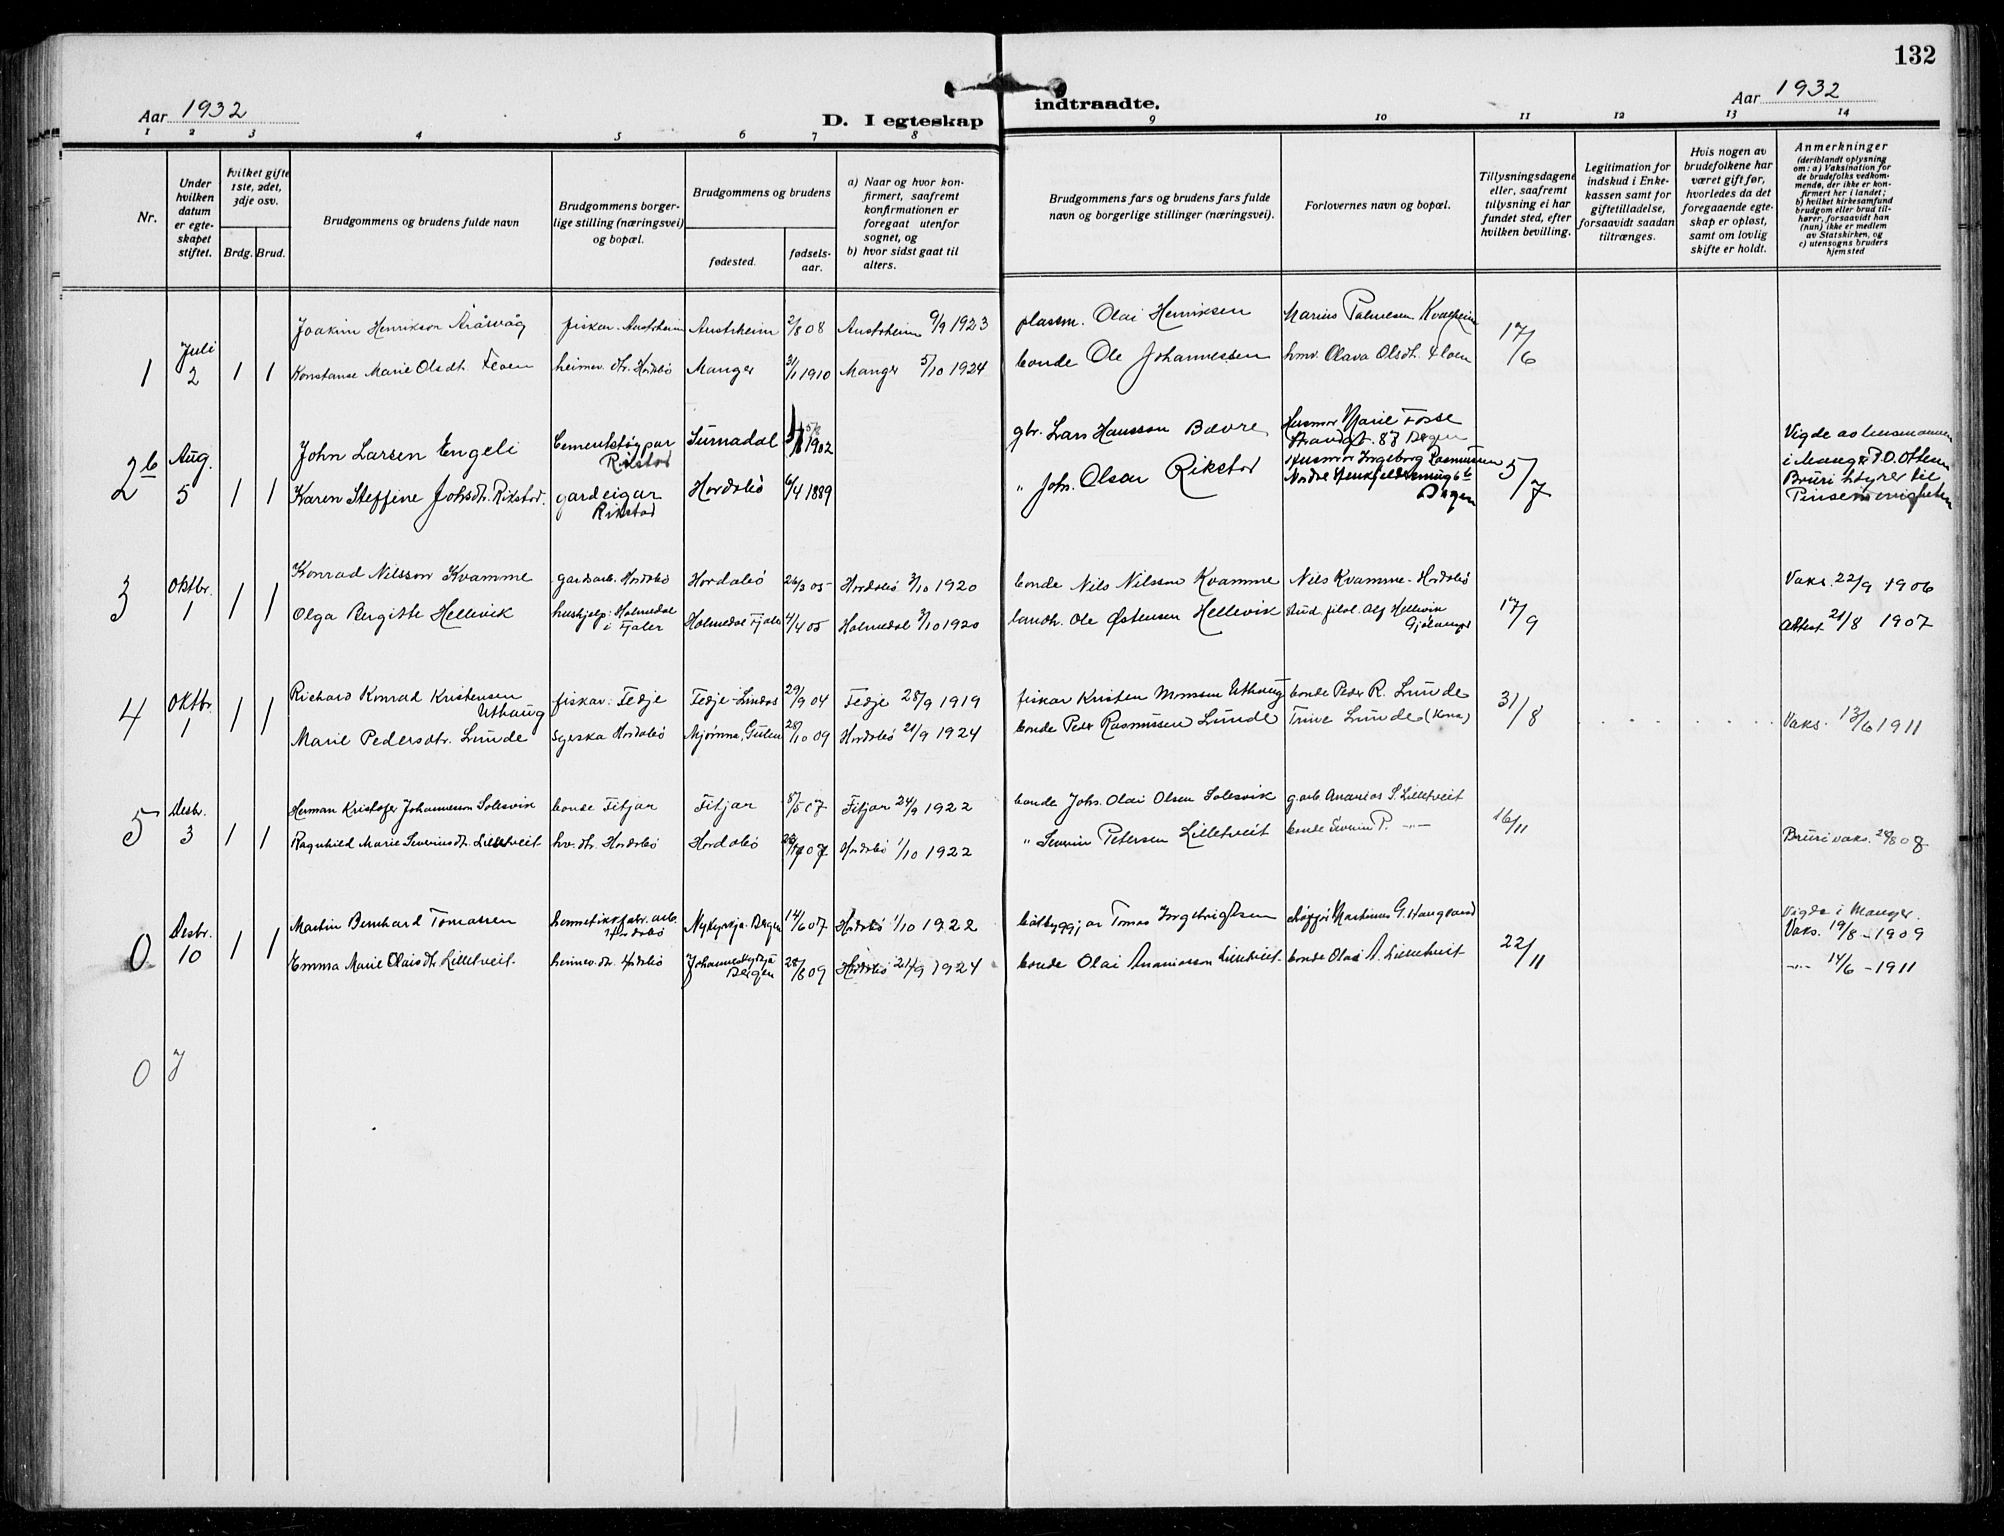 132
Aar 1932
D. I egteskap
indtraadte.
Aar 1932
1 2 3 4 5 6 7 8 9 10 11 12 13 14
Nr.
Under hvilken datum er egteskapet stiftet.
Hvilket gifte 1ste, 2det, 3dje osv.
Brdg. Brud.
Brudgommens og brudens fulde navn
Brudgommens borgerlige stilling (næringsvei) og bopæl.
Brudgommens og brudens
fødested.
fødselsaar.
a) Naar og hvor konfirmert, saafremt konfirmationen er foregaat utenfor sognet, og
b) hvor sidst gaat til alters.
Brudgommens fars og brudens fars fulde navn og borgerlige stillinger (næringsvei).
Forlovernes navn og bopæl.
Tillysningsdagene eller, saafremt tillysning ei har fundet sted, efter hvilken bevilling.
Legitimation for indskud i Enkekassen samt for giftetilladelse, forsaavidt saadan tiltrænges.
Hvis nogen av brudefolkene har været gift før, hvorledes da det foregaaende egteskap er opløst, samt om lovlig skifte er holdt.
Anmerkninger
(deriblandt oplysning om: a) Vaksination for de brudefolks vedkommende, der ikke er konfirmert her i landet; b) hvilket kirkesamfund brudgom eller brud tilhører, forsaavidt han (hun) ikke er medlem av Statskirken, og c) utensogns bruders hjemsted
Joakim Henrikson Aråsvåg fiskar. Austrheim Austrheim 2/8 08 Austrheim 9/9 1923 plassm. Olai Henriksen Marius
1 Juli 2 1 1 Konstanse Marie Olsdt. Floen heimev. dt. Hordabø Manger 3/1 1910 Manger 5/10 1924 bonde Ole Johannessen hmv. Olava Olsdt. Floen 17/6
John Larsen Engeli Cementstøypar Rikstad Surnadal 1902 gbr. Lars Hansson Bævre Husmor Marie Fosse Strandgt. 87 Bergen
2 b Aug. 5 1 1 Karen Steffine Johsdt. Rikstad. gardeigar Rikstad Hordabø 6/4 1889 " Joh. Olsen Rikstad Husmor Ingeborg Rasmussen Nordre Bergen 5/7
Vigde av lensmannen i Manger P. O. Ottesen Bruri høyrer til Pinsemenigheten
Konrad Nilsson Kvamme gardsarb. Hordabø Hordabø 26/3 05 Hordabø 3/10 1920 bonde Nils Nilsson Kvamme Nils Kvamme - Hordabø Vaks. 22/9 1906
3 Oktbr. 1 1 1 Olga Bergitte Hellevik hushjelp: Holmedal i Fjaler Holmedal Fjaler 4/4 05 Holmedal 3/10 1920 landh. Ole Østensen Hellevik stud. filol. Alf Hellevik 17/9 Attest 21/8 1907
Richard Konrad Kristensen Uthaug fiskar: Fedje Fedje - Lindås 29/9 04 Fedje 28/9 1919 fiskar Kristen Monsen Uthaug bonde Peder R. Lunde
4 Oktbr. 1 1 1 Marie Pedersdtr. Lunde syerska Hordabø Mjømna, Gulen 28/10 09 Hordabø 21/9 1924 bonde Peder Rasmussen Lunde Trine Lunde (kona) 31/8 Vaks. 13/6 1911
Herman Kristofer Johannesson Solesvik bonde Fitjar Fitjar 8/5 07 Fitjar 24/9 1922 bonde Johs. Olai Olsen Solesvik g. arb. Ananias S. Lilletveit
5 Desbr. 3 1 1 Ragnhild Marie Severinsdtr. Lilletveit hv. dt. Hordabø Hordabø 07 Hordabø 1/10 1922 " Severin Petersen Lilletveit bonde Severin P. -"- 16/11 Bruri vaks. 08
Martin Bernhard Tomassen hermetikkfabr. arb. Hordabø Nykyrkja - Bergen 14/6 07 Hordabø 1/10 1922 båtbyggjar Tomas Ingebrigtsen Martinus G. Haugland Vigde i Manger. Vaks. 19/8 - 1909
0 Desbr. 10 1 1 Emma Marie Olaisdtr. Lilletveit. heimev. dt. Hordabø Johanneskyrkja Bergen 09 Hordabø 21/9 1924 bonde Olai Ananiassen Lilletveit. bonde Olai A. Lilletveit 22/11 -"- 14/6 - 1911
0